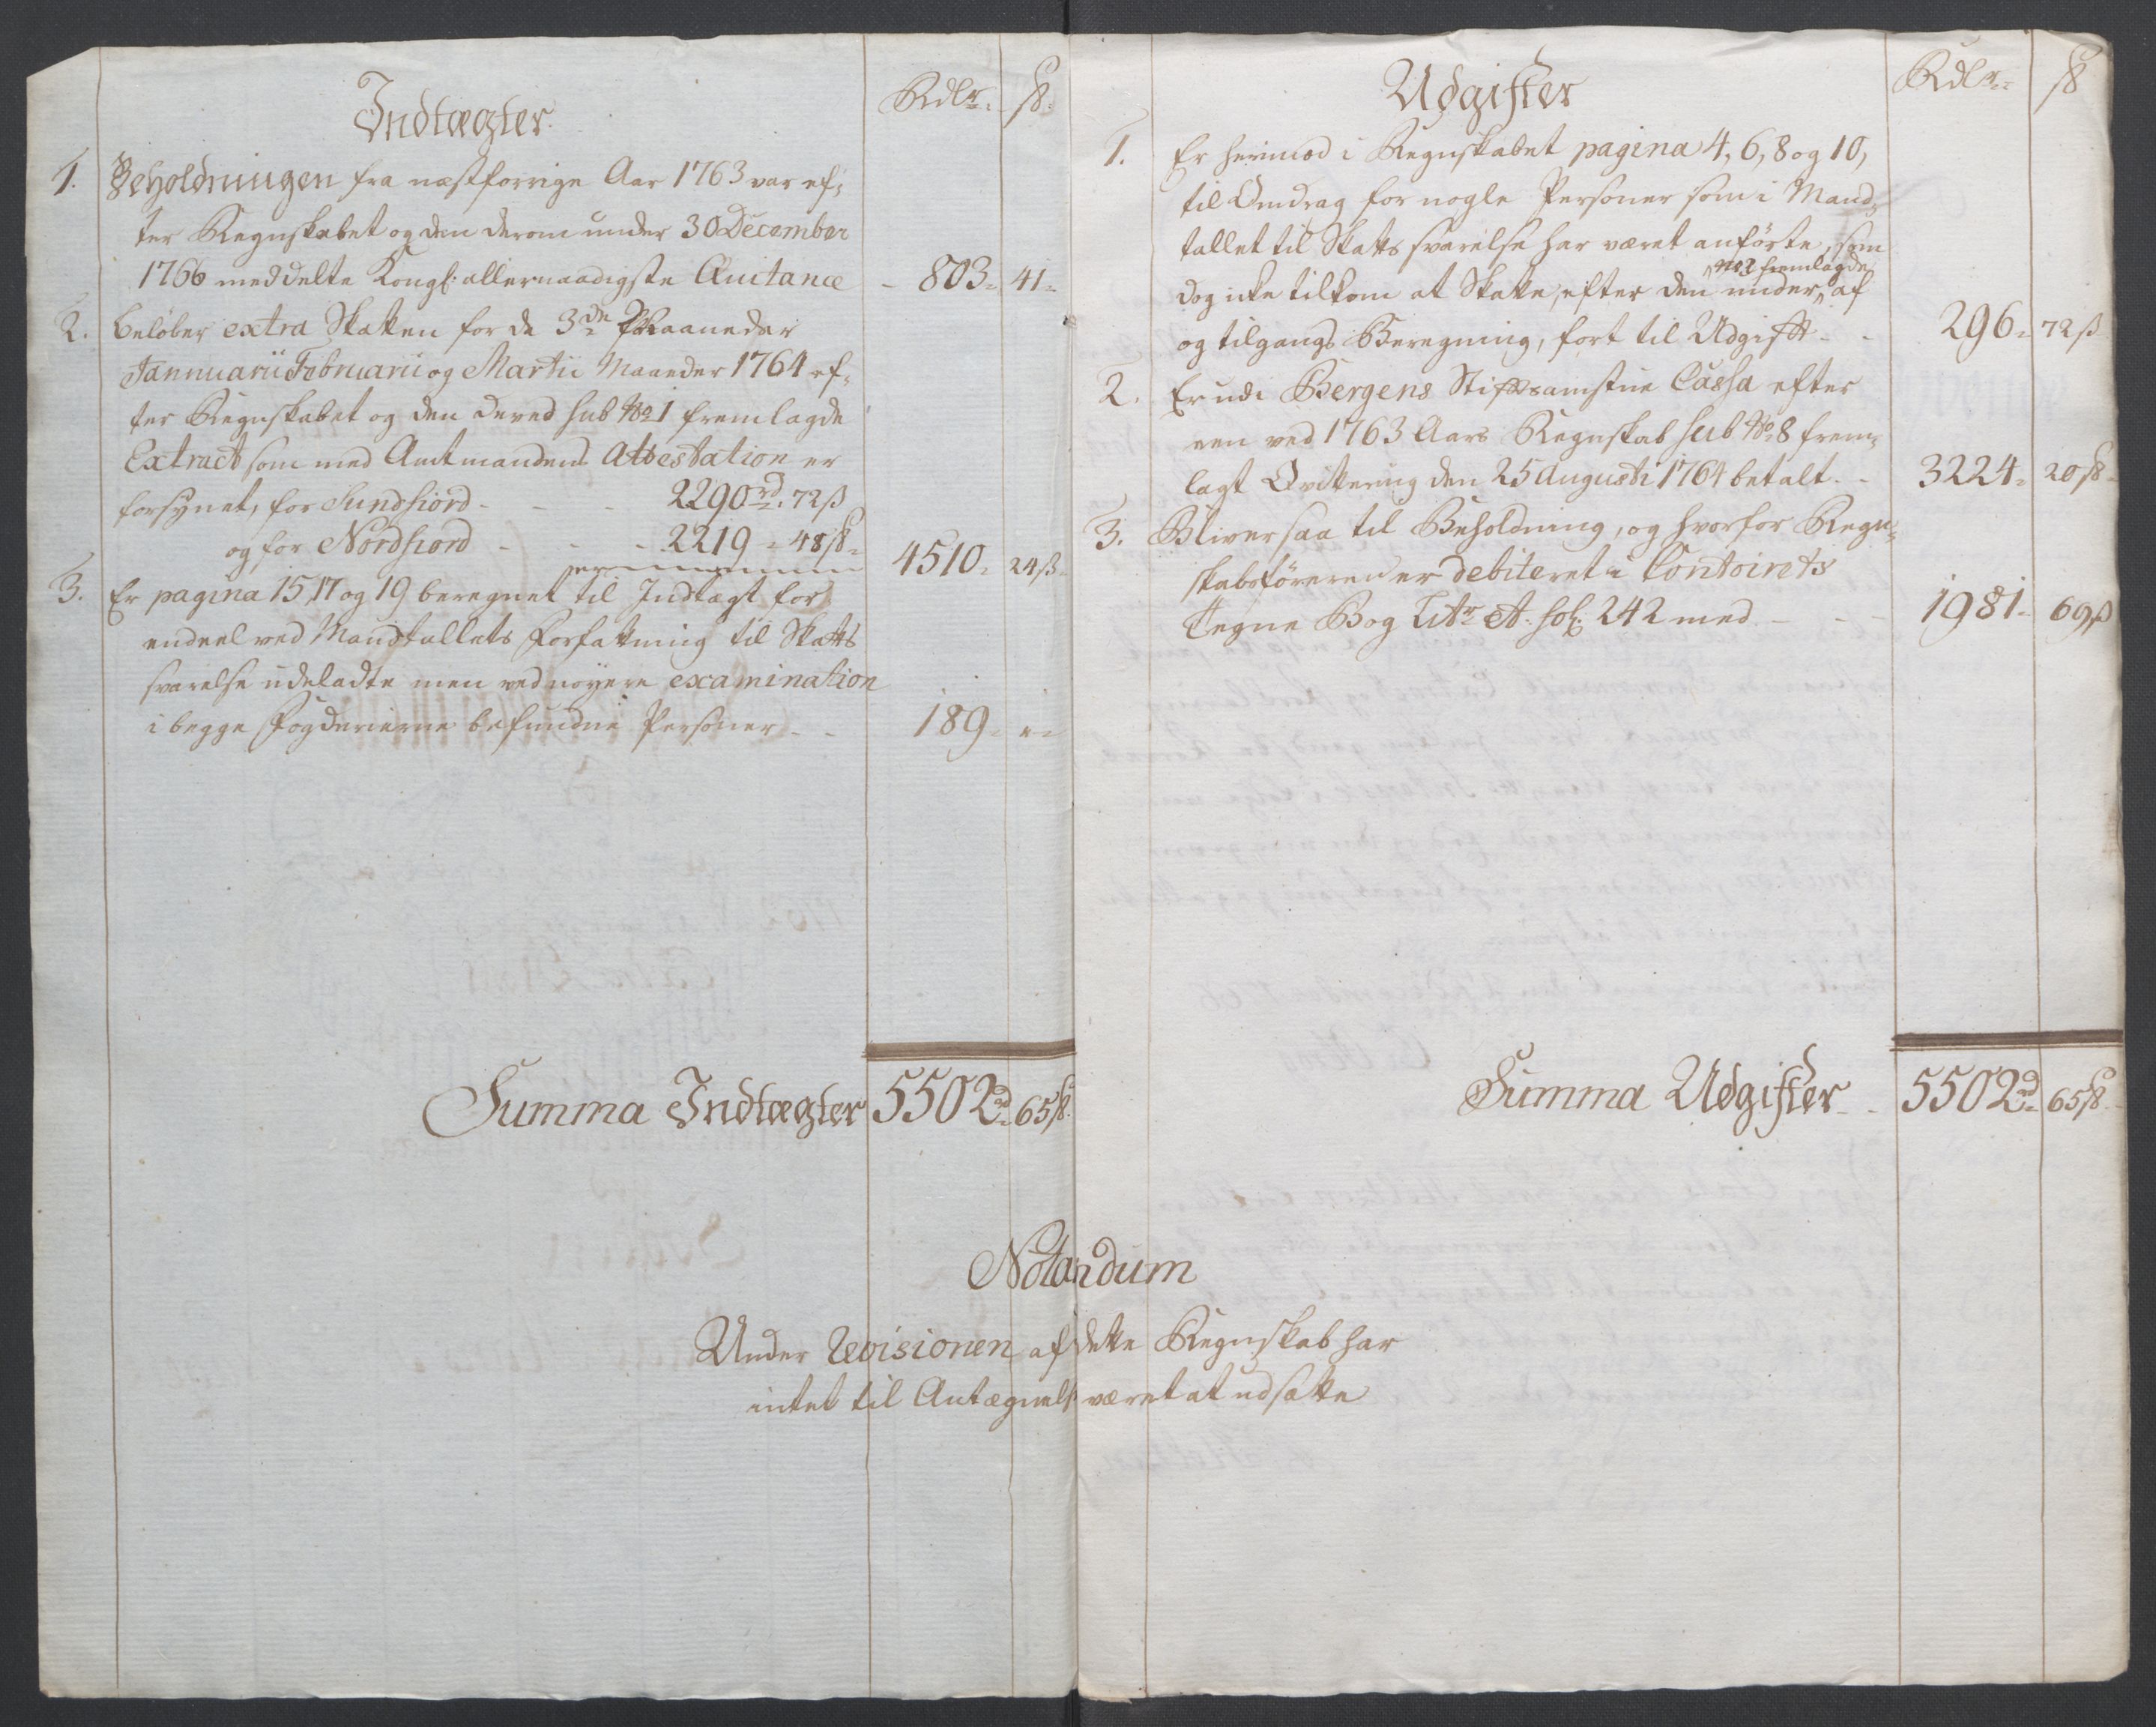 Indtægter
Rdlr. ß.
1. Beholdningen fra næstforrige Aar 1763 var ef-
ter Regnskabet og den derom under 30 December
1766 meddelte Kongl: allernaadigste Quitance - 803. 41.
2. beløber extra Skatten for de 3de Maaneder
Jannuarii Februarii og Martii Maaneder 1764 ef-
ter Regnskabet og den derved sub No. 1 fremlagde
Extract som med Amtmandens Attestation er
forsynet, for Sundfiord - - - 2290rd. 72ß
og for Nordfiord - - - 2219 - 48ß. 4510. 24ß.
3. Er pagina 15, 17 og 19 beregnet til Indtægt for
endeel ved Mandtallets Forfatning til Skatts
svarelse udeladte men ved nøyere examination
i begge Fogderierne befundne Personer - - 189. "
Summa Indtægter 5502rd. 65ß.
Udgifter
Rdlr. ß
1. Er herimod i Regnskabet pagina 4, 6, 8 og 10,
til Omdrag for nogle Personer som i Mand-
tallet til Skatts svarelse har været anførte, som
dog icke tilkom at Skatte, efter den under No 2 fremlagde af
og tilgangs Beregning, ført til Udgift - - 296. 72ß
2. Er udi Bergens Stiftsamstue Cassa efter
een ved 1763 Aars Regnskab sub No. 8 frem-
lagt Qvittering den 25 Augusti 1764 betalt. - 3224. 20ß.
3. Bliver saa til Beholdning, og hvorfor Regn-
skabsføreren er debiteret i Contoirets
Tegne Bog Litr. A. fol: 242 med - - - 1981. 69ß
Summa Udgifter - - 5502rd. 65ß.
Notandum
Under Revisionen af dette Regnskab har
intet til Antægnelse været at udsætte